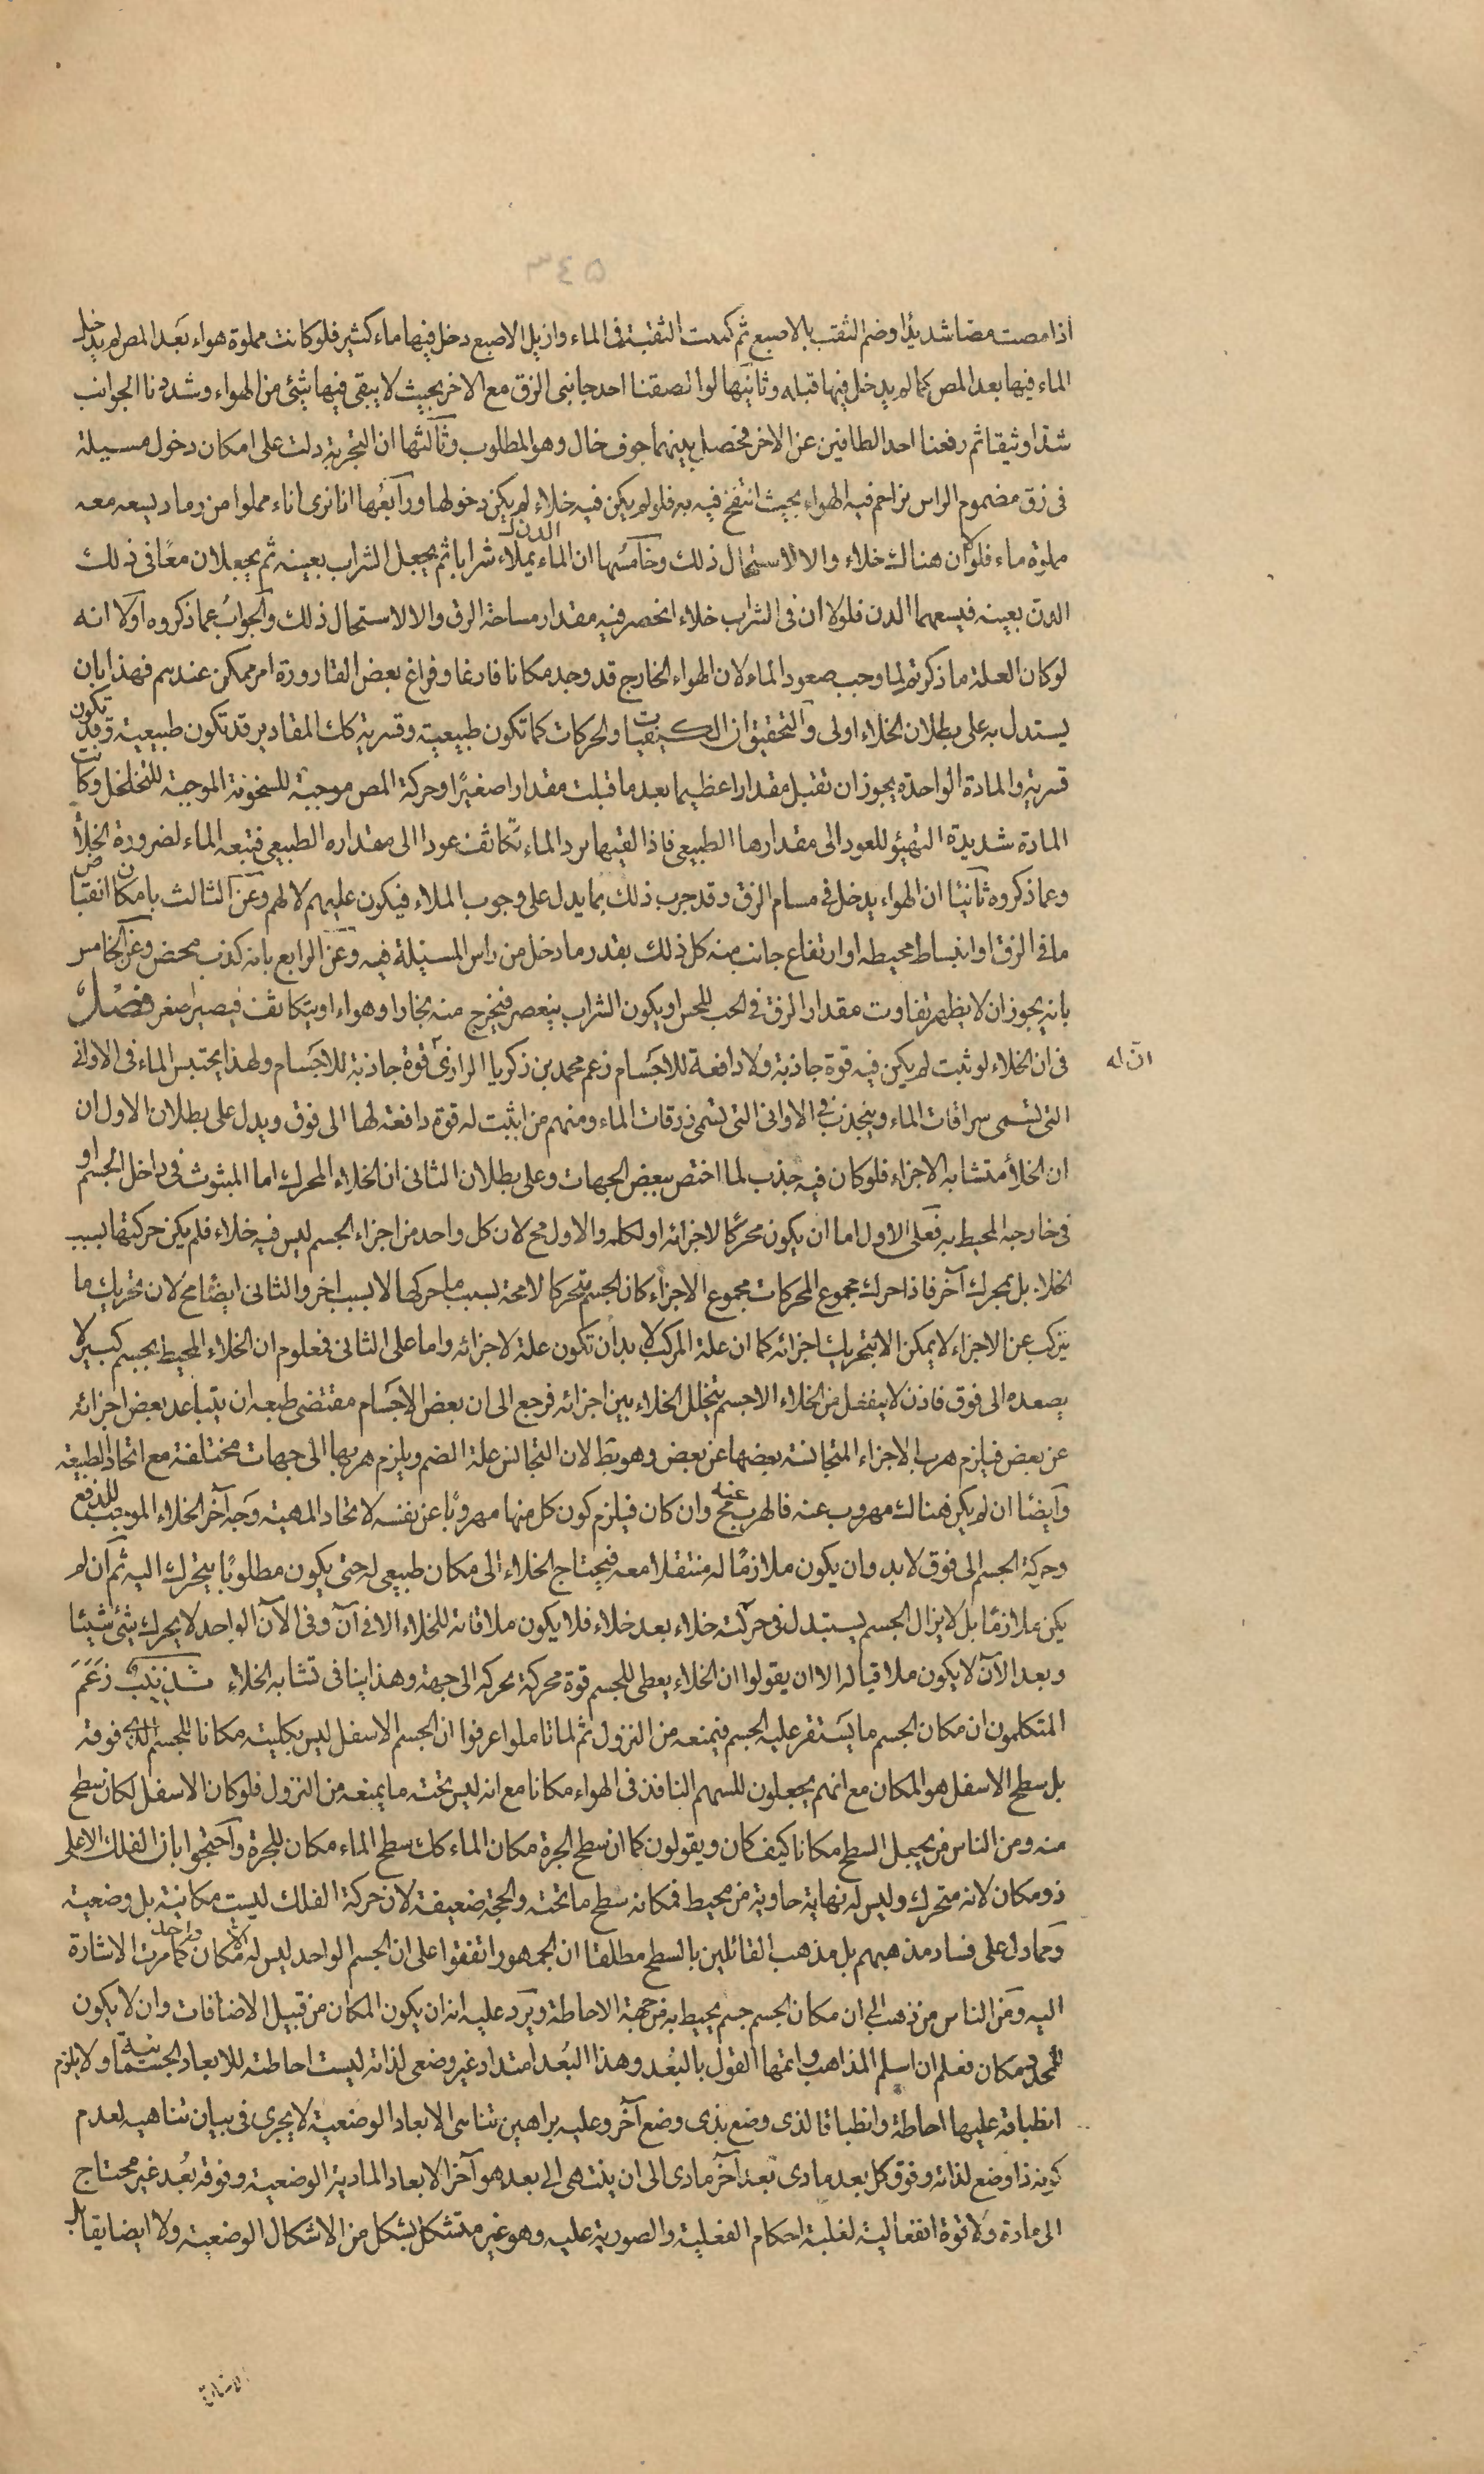 ٣٤٥
اذا مصت مصا شديدًا وضم الثقب بالاصبع ثم كبت الثقبة فى الماء وازيل الاصبع دخل فيها ماء كثير فلو كانت مملوة هواء بعد المص لم يدخل
الماء فيها بعد المص كما لم يدخل فيها قبله وثانيها لو الصقنا احد جانبى الزق مع الاخر بحيث لا يبقى فيها شئ من الهواء وشددنا الجوانب
شدا وثيقا ثم رفعنا احد الطافين عن الاخر فحصل بينهما جوف خال وهو المطلوب وثالثها ان التجربة دلت على امكان دخول مسيلة
فى زق مضموم الراس تزاحم فيه الهواء بحيث انتفخ فيه به فلو لم يكن فيه خلاء لم يكن دخولها ورابعها انا نرى اناء مملوا من رماد يسعه معه
مملوة ماء فلو ان هناك خلاء والا لاستحال ذلك وخامسها ان الماء الدن يملاء شرابا ثم يجعل الشراب بعينه ثم يجعلان معًا فى ذلك
الدن بعينه فيسعهما الدن فلولا ان فى الشراب خلاء انحصر فيه مقدار مساحة الزق والا لاستحال ذلك والجواب عما ذكروه اولا انه
لو كان العلة ما ذكرتم لما وجب صعود الماء لان الهواء الخارج قد وجد مكانا فارغا وفراغ بعض القارورة امر ممكن عندهم فهذا بان
يستدل به على بطلان الخلاء اولى والتحقيق ان الكيفيات والحركات كما تكون طبيعية وقسرية كك المقادير قد تكون طبيعية وقد تكون
قسرية والمادة الواحدة يجوز ان تقبل مقدارا عظيما بعد ما قبلت مقدارا صغيرًا وحركة المص موجبة للسخونة الموجبة للتخلخل وكانت
المادة شديدة التهيؤ للعود الى مقدارها الطبيعى فاذا لقيها برد الماء تكاثف عودا الى مقداره الطبيعى فتبعه الماء لضرورة الخلأ
وعما ذكروه ثانيًا ان الهواء يدخل فى مسام الزق وقد جرب ذلك بما يدل على وجوب الملاء فيكون عليهم لا لهم وعن الثالث بامكان انقباض
ما فى الزق او انبساط محيطه او ارتفاع جانب منه كل ذلك بقدر ما دخل من راس المسيلة فيه وعن الرابع بانه كذب محض وعن الخامس
بانه يجوز ان لا يظهر تفاوت مقدار الزق فى الحب للحس او يكون الشراب ينعصر فيخرج منه بخارا وهواء او يتكاثف فيصير اصغر فصل
فى ان الخلاء لو ثبت لم يكن فيه قوة جاذبة ولا دافعة للاجسام زعم محمد بن زكريا الرازى قوة جاذبة للاجسام ولهذا يحتبس الماء فى الاوانى
ان له
التى تسمى سراقات الماء وينجذب فى الاوانى التى تسمى زرقات الماء ومنهم من اثبت له قوة دافعة لها الى فوق ويدل على بطلان الاول ان
ان الخلأ متشابه الاجزاء فلو كان فيه جذب لما اختص ببعض الجهات وعلى بطلان الثانى ان الخلاء المحرك اما المبثوث فى داخل الجسم او
فى خارجه المحيط به فعلى الاول اما ان يكون محركًا لاجزائه او لكله والاول مح لان كل واحد من اجزاء الجسم ليس فيه خلاء فلم يكن حركتها بسبب
الخلاء بل بمحرك آخر فاذا حرك مجموع المحركات مجموع الاجزاء كان الجسم متحركا لا محة بسبب ما حركها لا بسبب اخر والثانى ايضًا مح لان تحريك ما
يتركب عن الاجزاء لا يمكن الا بتحريك اجزائه كما ان علة المركب لا بد ان تكون علة لاجزائه واما على الثانى فمعلوم ان الخلاء المحيط بجسم كبير لا
يصعده الى فوق فاذن لا ينفعل من الخلاء الا جسم يتخلل الخلاء بين اجزائه فرجع الى ان بعض الاجسام مقتضى طبعه ان يتباعد بعض اجزائه
عن بعض فيلزم هرب الاجزاء المتجانسة بعضها عن بعض وهو بط لان التجانس علة الضم ويلزم هربها الى جهات مختلفة مع اتحاد الطبيعة
وايضًا ان لم يكن هناك مهروب عنه فالهرب عنه مح وان كان فيلزم كون كل منها مهروبًا عن نفسه لاتحاد المهية وجه آخر الخلاء الموجب للدفع
وحركة الجسم الى فوق لا بد وان يكون ملازمًا له منتقلا معه فيحتاج الخلاء الى مكان طبيعى له حتى يكون مطلوبًا يتحرك اليه ثم ان لم
يكن ملازمًا بل لا يزال الجسم يستبدل فى حركته خلاء بعد خلاء فلا يكون ملاقاته للخلاء الا فى آن وفى الآن الواحد لا يحرك شئ شيئا
وبعد الآن لا يكون ملاقيا له الا ان يقولوا ان الخلاء يعطى للجسم قوة محركة تحركه الى جهة وهذا ينافى تشابه الخلاء تذنيب زعم
المتكلمون ان مكان الجسم ما يستقر عليه الجسم فيمنعه من النزول ثم لما تاملوا عرفوا ان الجسم الاسفل ليس بكليته مكانا للجسم الذى فوقه
بل سطح الاسفل هو المكان مع انهم يجعلون للسهم النافذ فى الهواء مكانا مع انه ليس تحته ما يمنعه من النزول فلو كان الاسفل لكان سطح
منه ومن الناس من يجعل السطح مكانا كيف كان ويقولون كما ان سطح الجرة مكان الماء كك سطح الماء مكان للجرة واحتجوا بان الفلك الاعلى
ذو مكان لانه متحرك وليس له نهاية حاوية من محيط فمكانه سطح ما تحته والحجة ضعيفة لان حركة الفلك ليست مكانية بل وضعية
ومما دل على فساد مذهبهم بل مذهب القائلين بالسطح مطلقا ان الجمهور اتفقوا على ان الجسم الواحد ليس له الا مكان واحد كما مرت الاشارة
اليه ومن الناس من ذهب الى ان مكان الجسم جسم يحيط به من جهة الاحاطة ويرد عليه انه ان يكون المكان من قبيل الاضافات وان لا يكون
للمحدد مكان فعلم ان اسلم المذاهب واتمها القول بالبعد وهذا البعد امتداد غير وضعى لذاته ليست احاطته للابعاد الجسمانية ولا يلزم
انطباقه عليها احاطة وانطباقا لذى وضع بذى وضع آخر وعليه براهين تناهى الابعاد الوضعية لا يجرى فى بيان تناهيه لعدم
كونه ذا وضع لذاته وفوق كل بعد مادى بعد آخر مادى الى ان ينتهى الى بعد هو آخر الابعاد المادية الوضعية وفوقه بعد غير محتاج
الى مادة ولا قوة انفعالية لغلبة احكام الفعلية والصورية عليه وهو غير متشكل بشكل من الاشكال الوضعية ولا ايضا يقابل